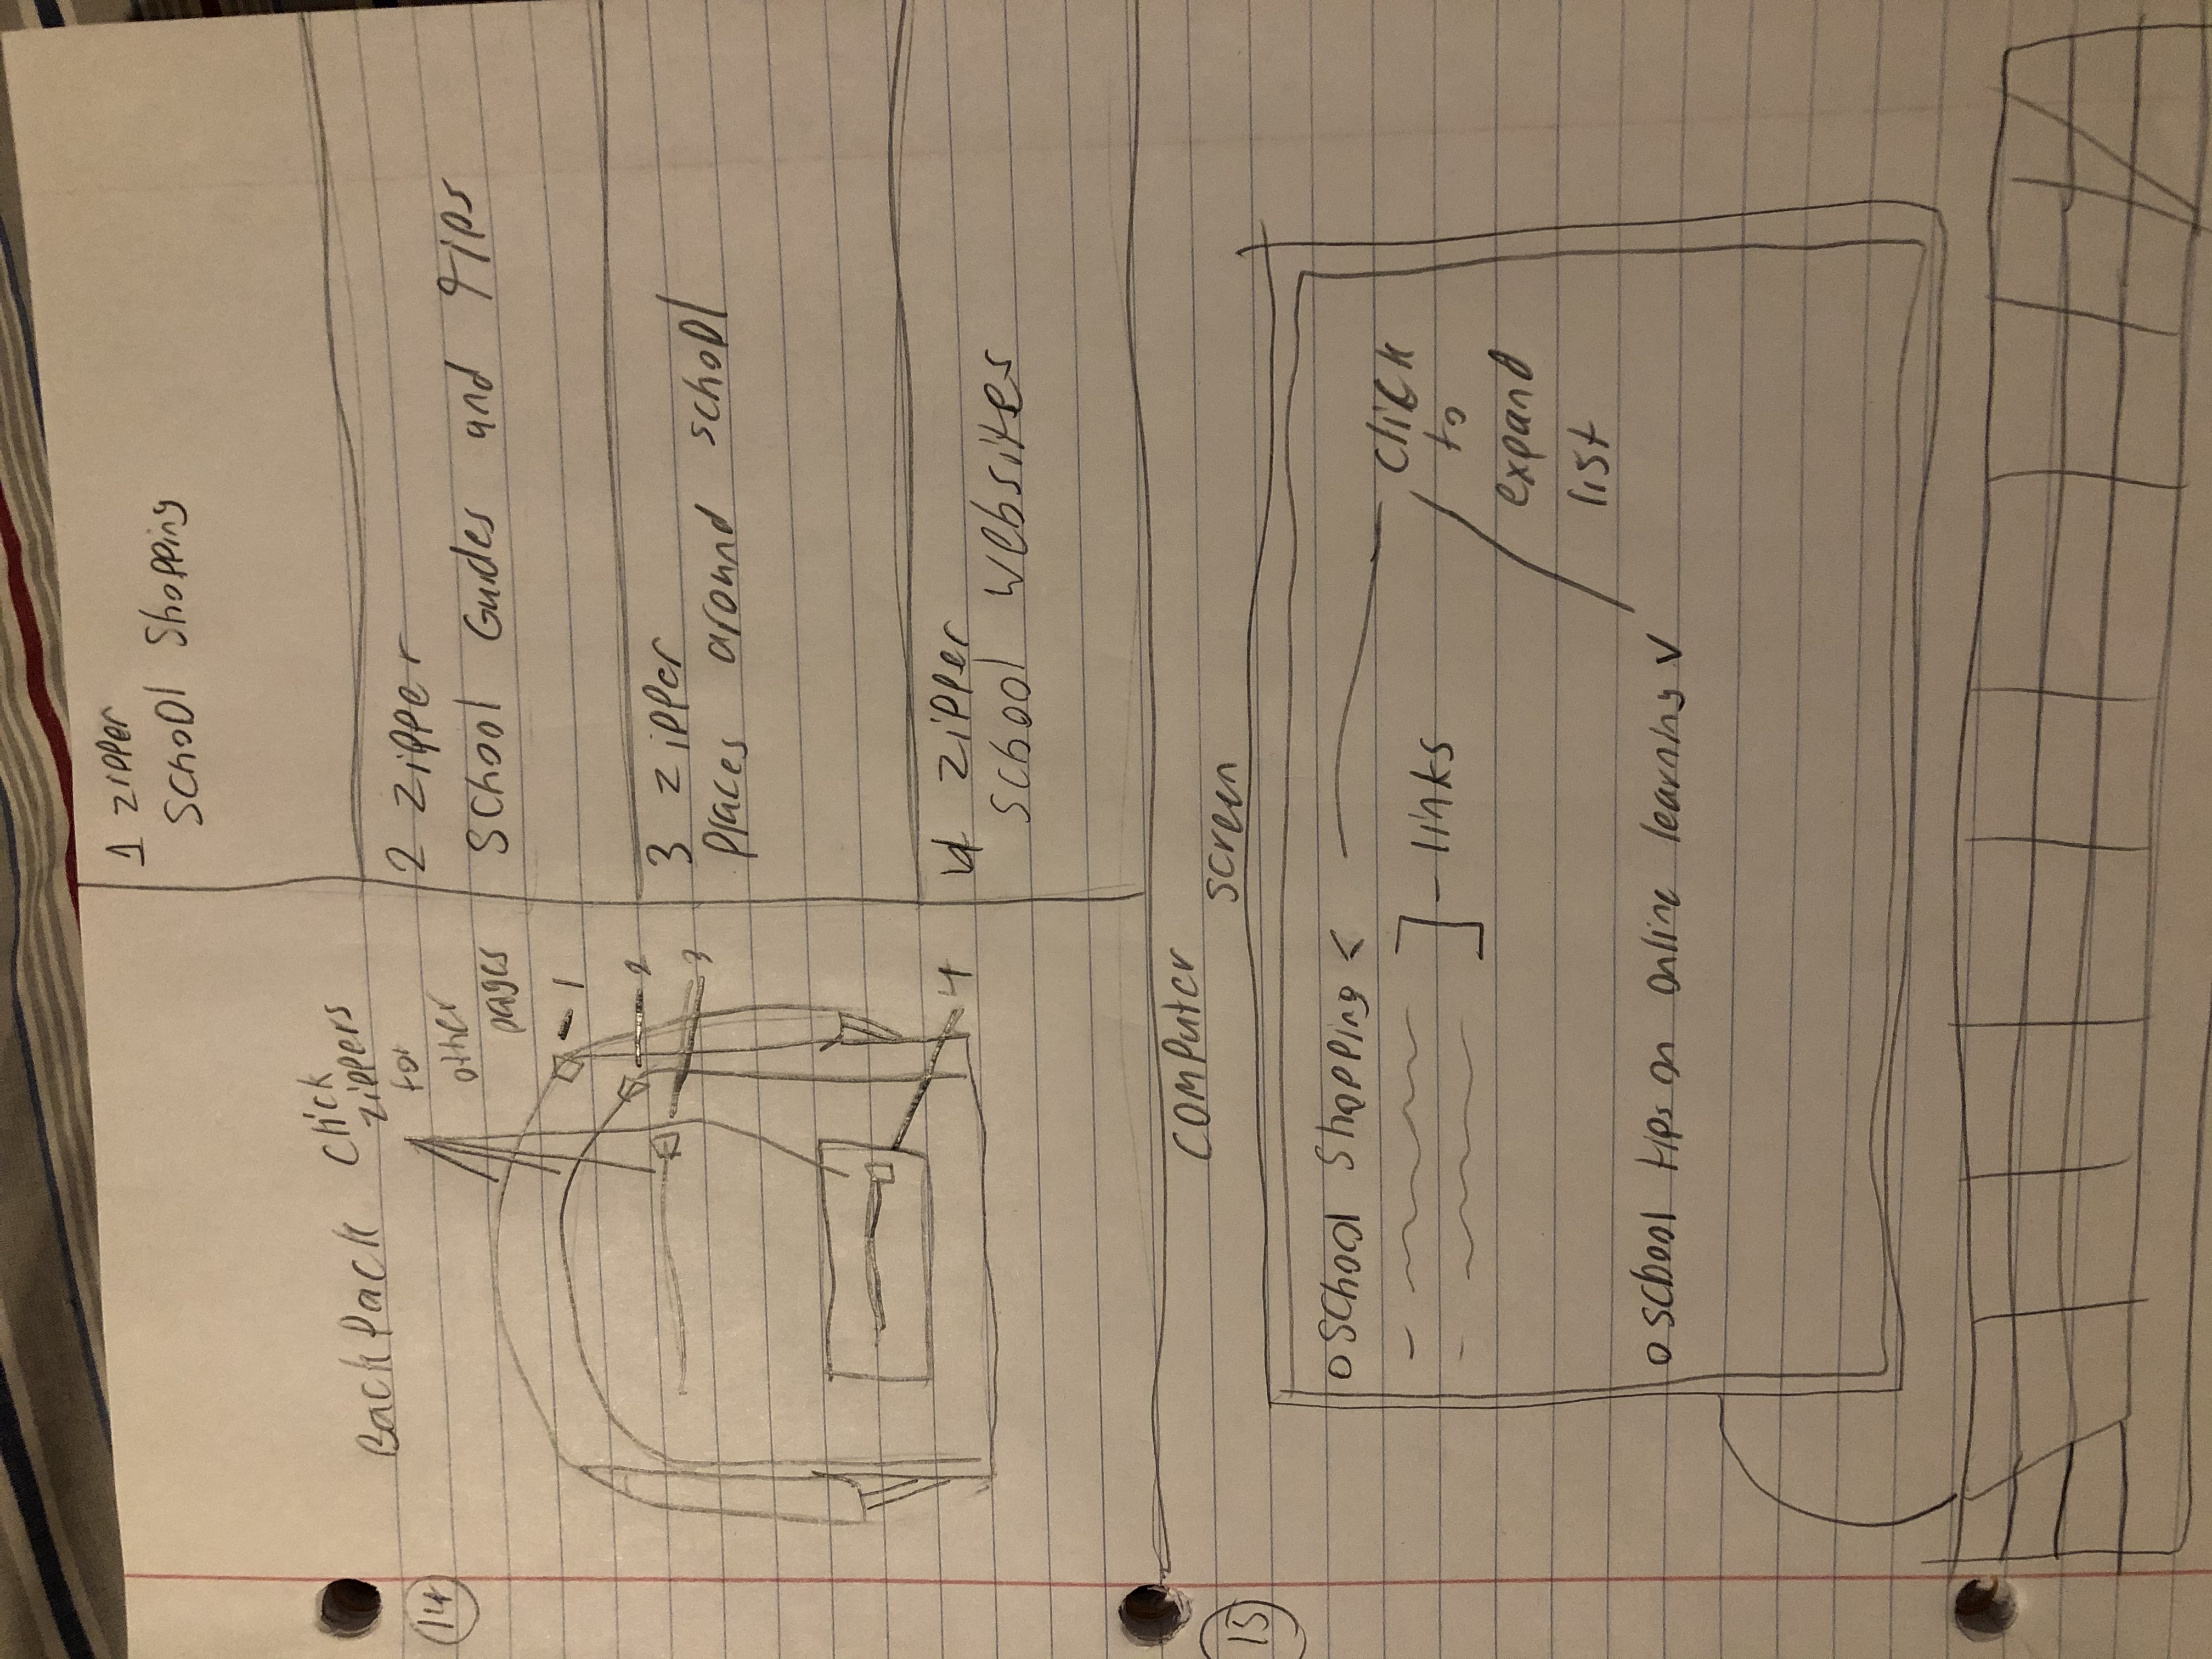 14
BackPack
Click
zippers
for
other
pages
1
2
3
4
1 zipper
School Shopping
2 zipper
School Guides and tips
3 zipper
Places around school
4 zipper
School websites
15
Computer
screen
o School Shopping <
- links
Click
to
expand
list
o school tips on online learning v